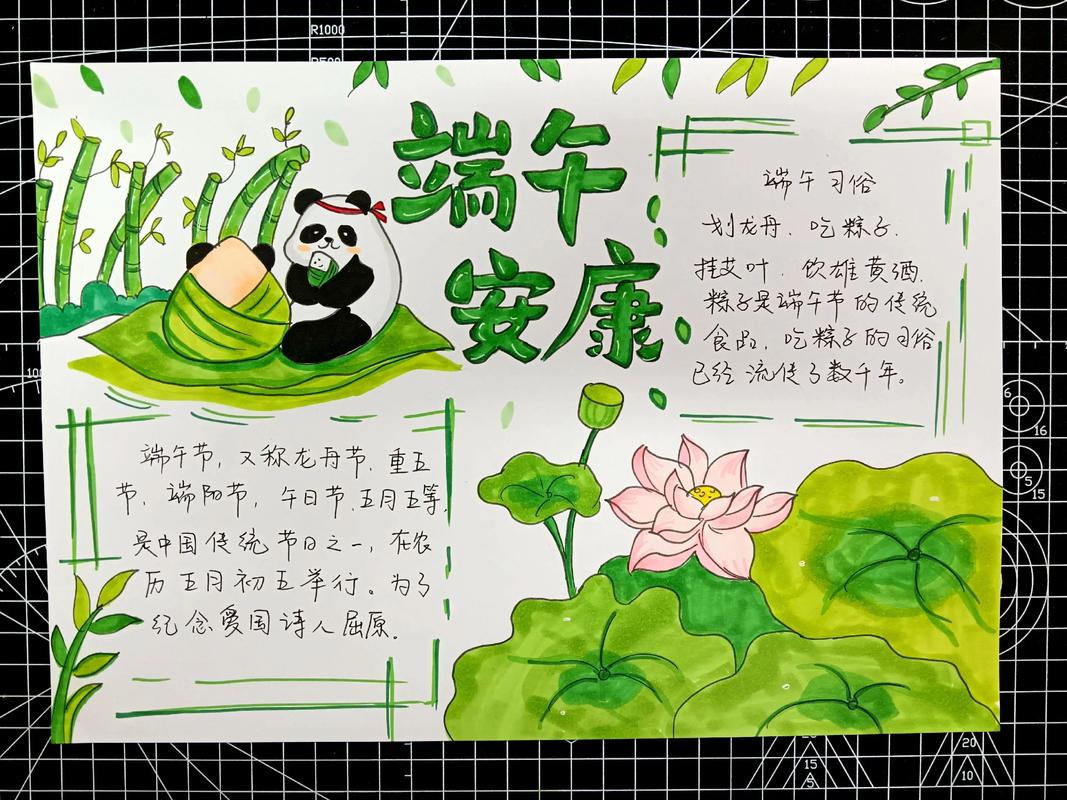 端午
安康
端午习俗
划龙舟、吃粽子、
挂艾叶、饮雄黄酒.
粽子是端午节的传统
食品，吃粽子的习俗
已经流传了数千年。
端午节，又称龙舟节、重五
节、端阳节，午日节、五月五等，
是中国传统节日之一，在农
历五月初五举行。为了
纪念爱国诗人屈原.
R1000
6
16
5
15
20
15
10
5